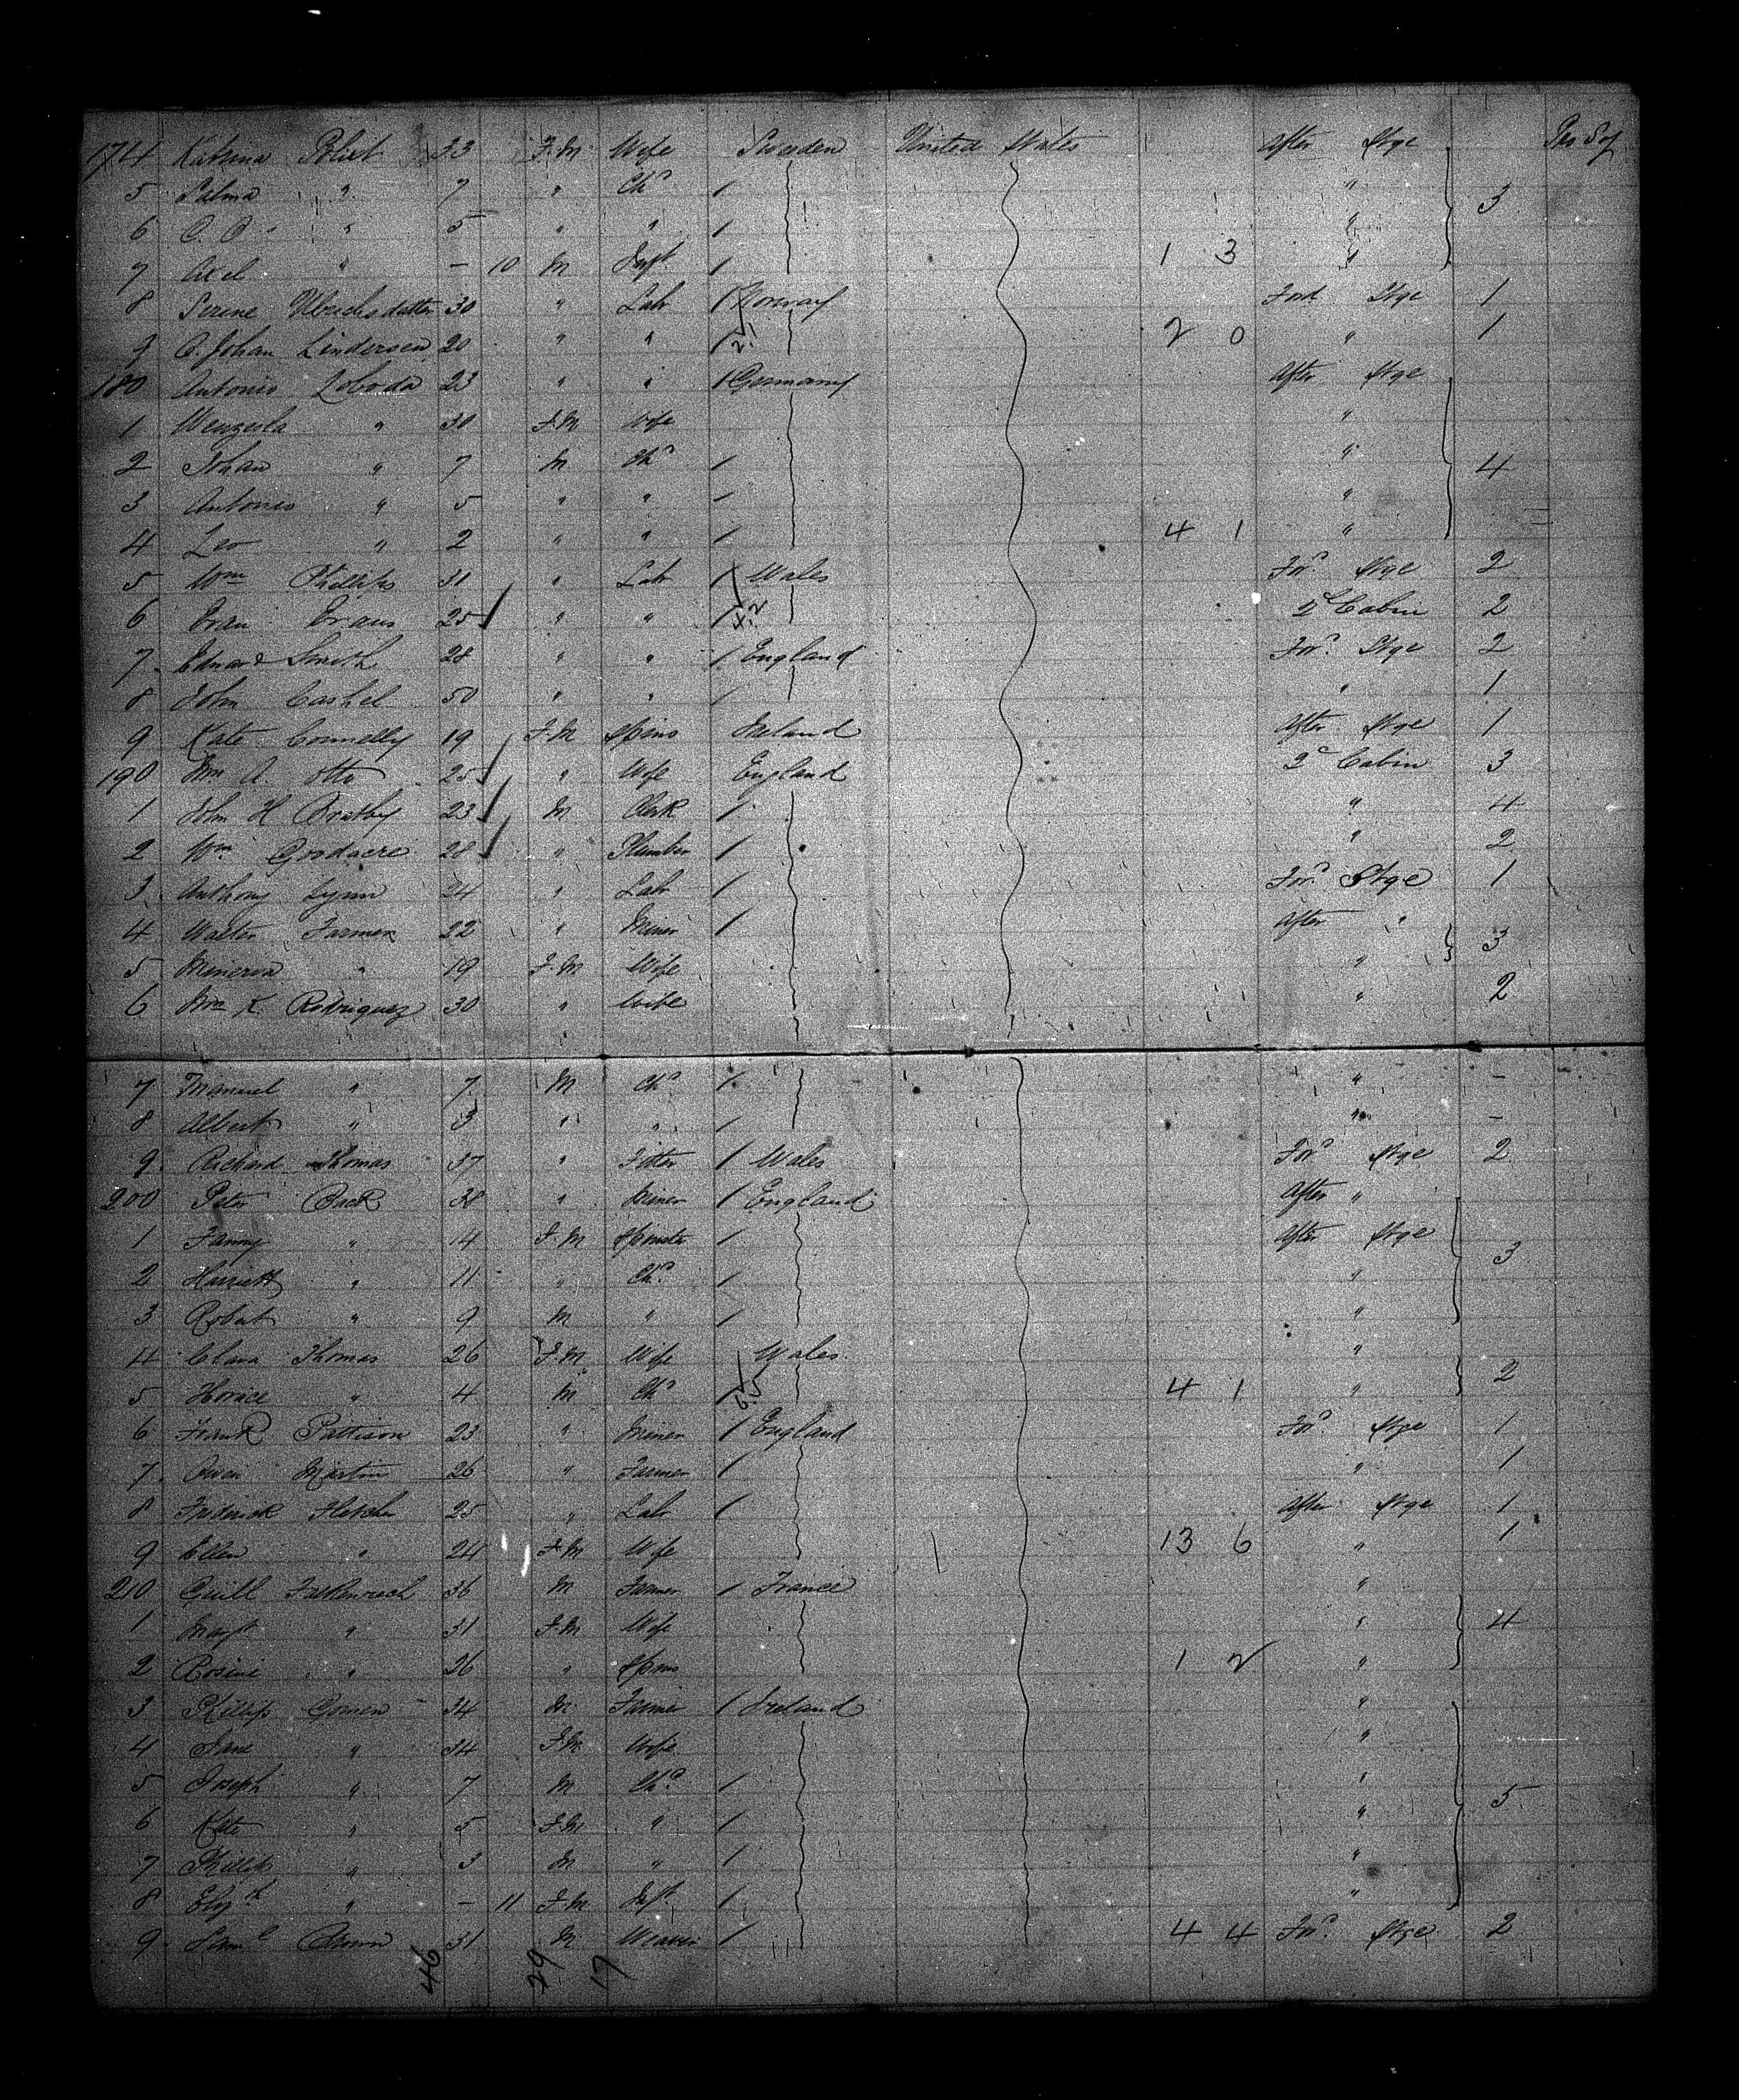 174 Katrina Polist 33 F.M Wife Sweden United States After Stge Pro Soj
5 Salma " 7 " Chd / " 3
6 C. B " 5 " " / "
7 Axel " - 10 M Inft / 1 3 "
8 Serine Ulrichsdatter 30 " Lab / Norway Ford Stge 1
9 C. Johan Lindersen 20 " " / 2.1 2 0 " 1
180 Antonio Loboda 23 " " / Germany After Stge
1 Wenzesla " 30 F.M Wife "
2 Johan " 7 M Chd / " 4
3 Antonio " 5 " " / "
4 Leo " 2 " " / 4 1 "
5 Wm Phillips 31 " Lab / Wales Ford Stge 2
6 Evan Evans 25 " " / 2d Cabin 2
7 Edward Smith 28 " " / England Ford Stge 2
8 John Cashel 50 " " / " 1
9 Kate Connelly 19 F.M Spins Ireland After Stge 1
190 Mrs A. Otto 25 " Wife England 2d Cabin 3
1 John H Bratby 23 M Clerk / " 4
2 Wm Goodacre 28 " Plumber / " 2
3 Anthony Lynn 24 " Lab / Ford Stge 1
4 Walter Farmer 22 " Miner / After " 3
5 Minerva " 19 F.M Wife "
6 Mrs K. Rodriguez 30 " Wife " 2
7 Manuel " 7 M Chd / " -
8 Albert " 3 " " / " -
9 Richard Thomas 37 " Fitter / Wales Ford Stge 2
200 Peter Back 38 " Miner / England After "
1 Fanny " 14 F.M Spinster / After Stge
2 Harriett " 11 " Chd / " 3
3 Robert " 9 M " / "
4 Clara Thomas 26 F.M Wife Wales "
5 Horace " 4 M Chd / 4 1 " 2
6 Frank Pattison 23 " Miner / England Ford Stge 1
7 Owen Martin 26 " Farmer / " 1
8 Frederick Fletcher 25 " Lab / After Stge 1
9 Ellen " 24 F.M Wife 13 6 " 1
210 Guill 36 M Farmer / France "
1 Margt " 31 F.M Wife " 4
2 Rosine " 26 " Spins 1 2 "
3 Phillip Gowen 34 M Farmer / Ireland "
4 Jane " 34 F.M Wife "
5 Joseph " 7 M Chd / "
6 Kate " 5 F.M " / " 5
7 Phillip " 3 M " / "
8 Elizth " - 11 F.M Inft / "
9 Saml Brown 31 M Weaver / 4 4 Ford Stge 2
46 29 17